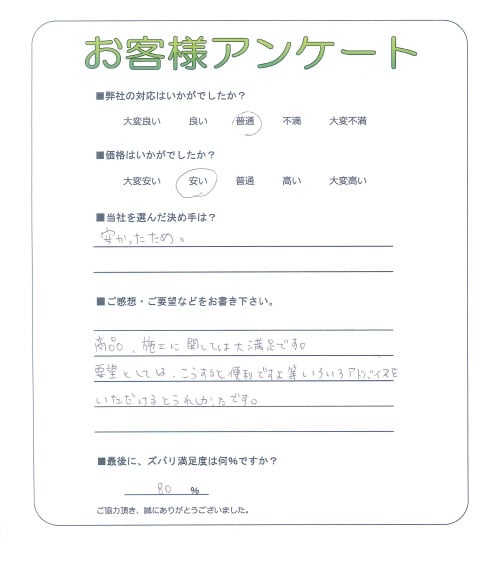 お客様アンケート
■弊社の対応はいかがでしたか？
大変良い 良い 普通 不満 大変不満
■価格はいかがでしたか？
大変安い 安い 普通 高い 大変高い
■当社を選んだ決め手は？
安かったため。
■ご感想・ご要望などをお書き下さい。
商品、施工に関しては大満足です。
要望としては、こうすると便利ですよ等いろいろアドバイスを
いただけるとうれしかったです。
■最後に、ズバリ満足度は何%ですか？
80 %
ご協力頂き、誠にありがとうございました。